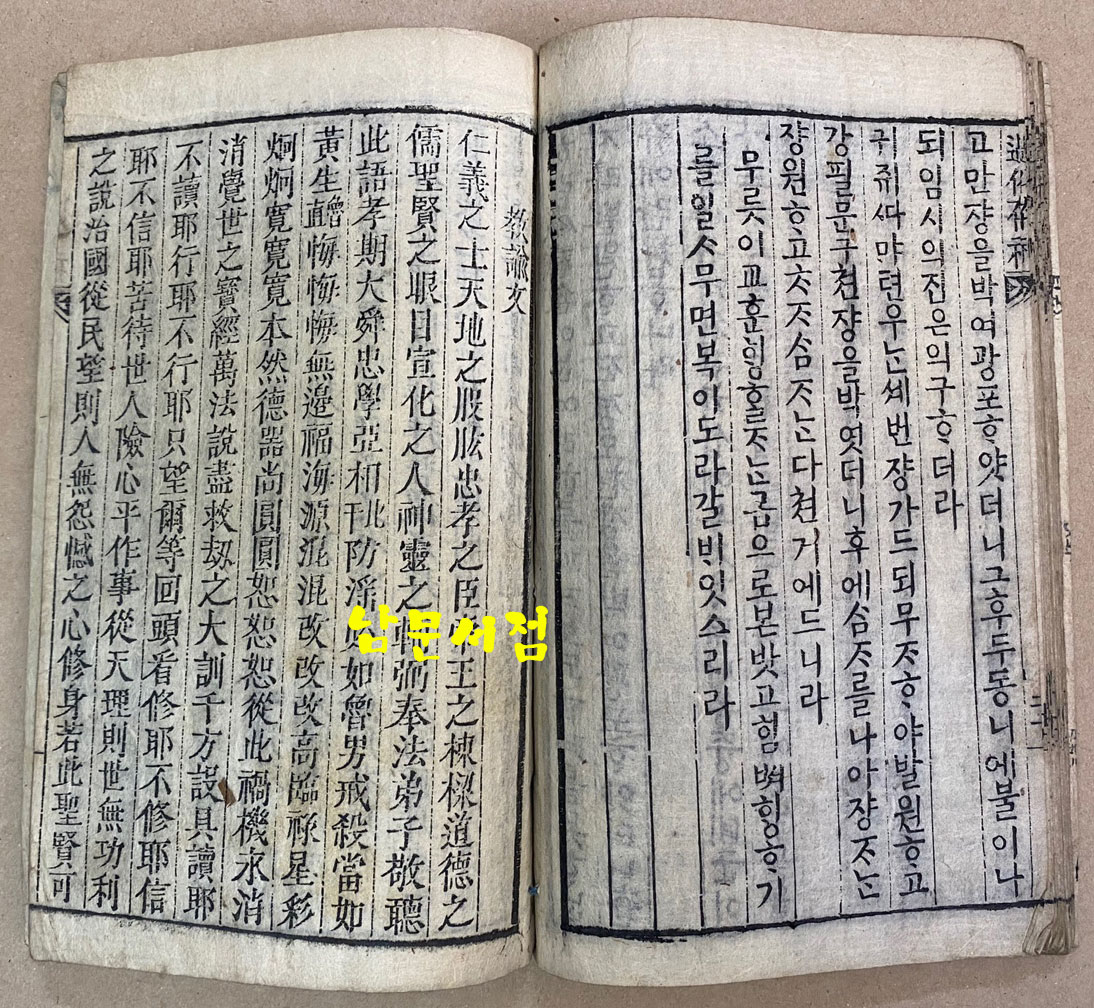 過化存神
고만쟝을박여광포ᄒᆞ얏더니그후두동ᄂᆡ에불이나
되임시의집은의구ᄒᆞ더라
귀쥐ᄯᅡ마텬우ᄂᆞᆫ셰번쟝가드되무ᄌᆞᄒᆞ야발원ᄒᆞ고
강필문구쳔쟝을박엿더니후에삼ᄌᆞ를나아쟝ᄌᆞᄂᆞᆫ
쟝원ᄒᆞ고ᄎᆞᄌᆞ삼ᄌᆞᄂᆞᆫ다쳔거에드니라
무릇이교훈ᄒᆡᆼᄒᆞᆯᄌᆞᄂᆞᆫ금으로본밧고힘ᄡᅥᄒᆡᆼᄒᆞ기
를일ᄉᆞ무면복이도라갈ᄇᆡ잇ᄉᆞ리라
敎諭文
仁義之士天地之股肱忠孝之臣帝王之棟樑道德之
儒聖賢之眼目宣化之人神靈之輔弼奉法弟子敬聽
此語孝期大舜忠學亞相刊防淫如魯男戒殺當如
黃生悔悔悔無邊福海源混混改改改高臨祿星彩
炯炯寬寬寬本然德器尚圓圓恕恕恕從此禍機永消
消覺世之寶經萬法說盡救刼之大訓千方設具讀耶
不讀耶行耶不行耶只望爾等回頭看修耶不修耶信
耶不信耶苦待世人險心平作事從天理則世無功利
之說治國從民望則人無怨憾之心修身若此聖賢可
남문서점